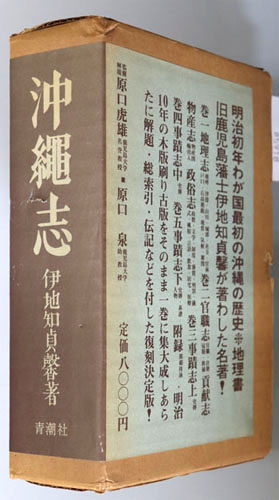 明治初年わが国最初の沖縄の歴史※地理書
旧鹿児島藩士伊地知貞馨が著わした名著！
巻一地理志
巻二官職志
貢献志
物産志
政俗志
巻三事蹟志上
巻四事蹟志中
巻五事蹟志下
附録
明治
10年の木版刷り古版をそのまま一巻に集大成しあら
たに解題・総索引・伝記などを付した復刻決定版！
原口虎雄
原口 泉
定価八〇〇〇円
沖繩志
伊地知貞馨著
青潮社